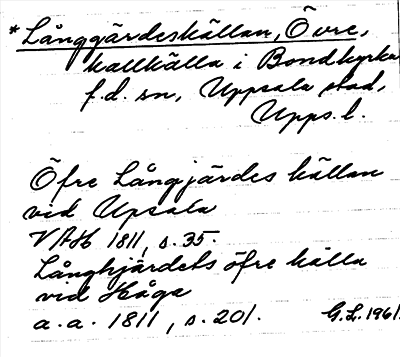 *Långgärdeskällan, Övre,
kallkälla i Bondkyrka
f.d. sn, Uppsala stad,
Upps. l.
Öfre Långjärdes källan
vid Upsala
VAH 1811, s. 35.
Långhjärdets öfre källa
vid Håga
a. a. 1811, s. 201.
G.L. 1961.